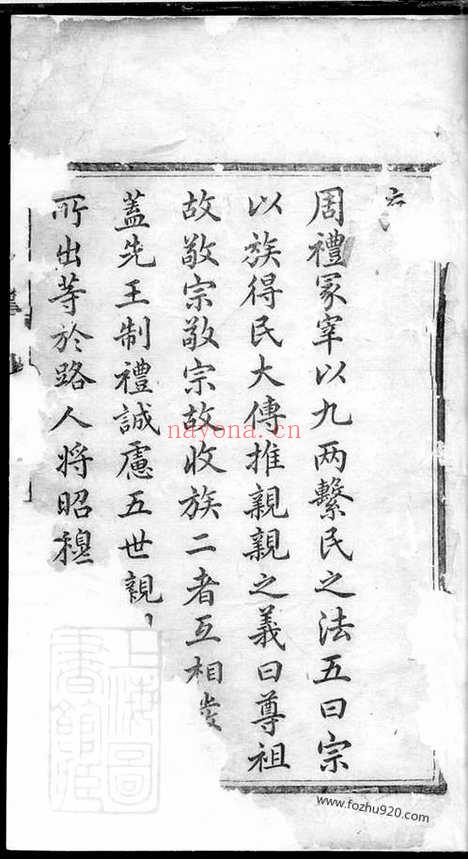 六
周禮冢宰以九两繫民之法五曰宗
以族得民大傳推親親之義曰尊祖
故敬宗敬宗故收族二者互相發
蓋先王制禮誠慮五世親
所出等於路人将昭穆
上海圖書館藏
nayona.cn
www.fozhu920.com